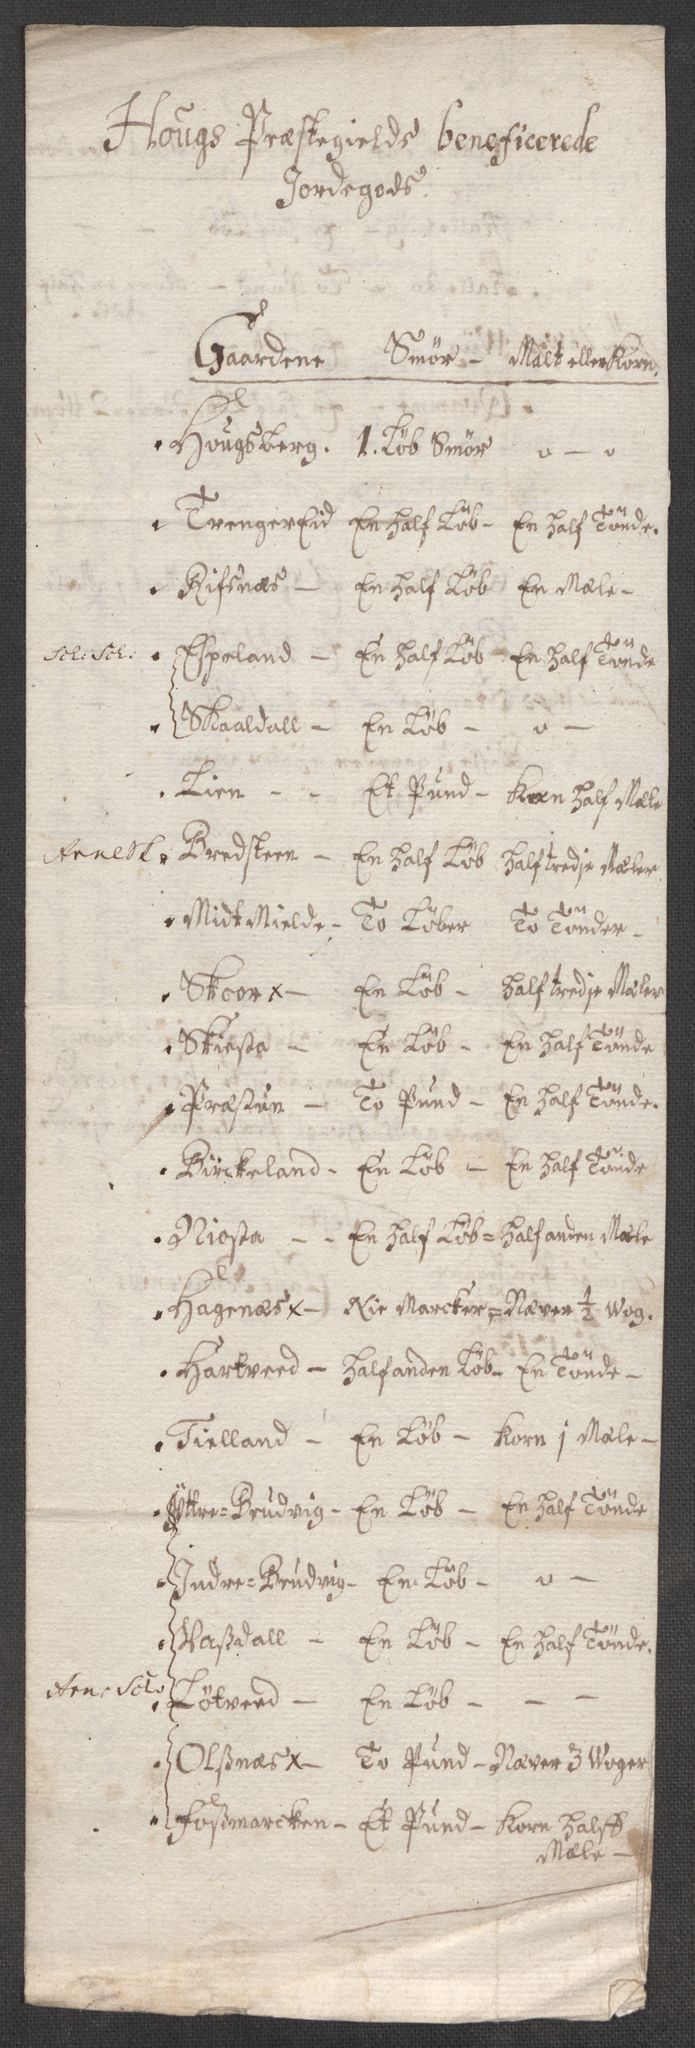 Hougs Præstegields beneficerede
Jordegods.
Gaardene Smør – Malt eller Korn.
Hougsberg. 1. Løb Smør o – o
TrengerEid En half Løb – En half Tönde.
Rifsnæs – En half Løb En Mæle –
Scl: Scl: Espeland – En half Løb En half Tönde
Skaaldall – En Løb – o –
Lien – – Et Pund – Korn half Mæle
Bredsteen – En half Løb halftredje Mæler
MidtMielde – To Løber To Tönder –
Skoor x – En Løb – halftredje Mæler
Skiesta – En Løb – En half Tönde
Præstun – To Pund – En half Tönde.
Birckeland – En Løb – En half Tönde
Niosta – – En half Løb = half anden Mæle
Hagenæs x – Nie Marcker = Næver ½ Wog.
Hartveed – half anden Løb – En Tönde –
Tielland – En Løb – Korn 1 Mæle –
Yttre = Brudvig – En Løb – En half Tönde
Indre = Brudvig – En Løb – o –
Vaßdall – En Løb – En half Tönde.
Arne Løtveed – En Løb – – –
Olßnæs x – To Pund – Næver 3 Woger
Foßmarcken – Et Pund – Korn halff
Mæle –